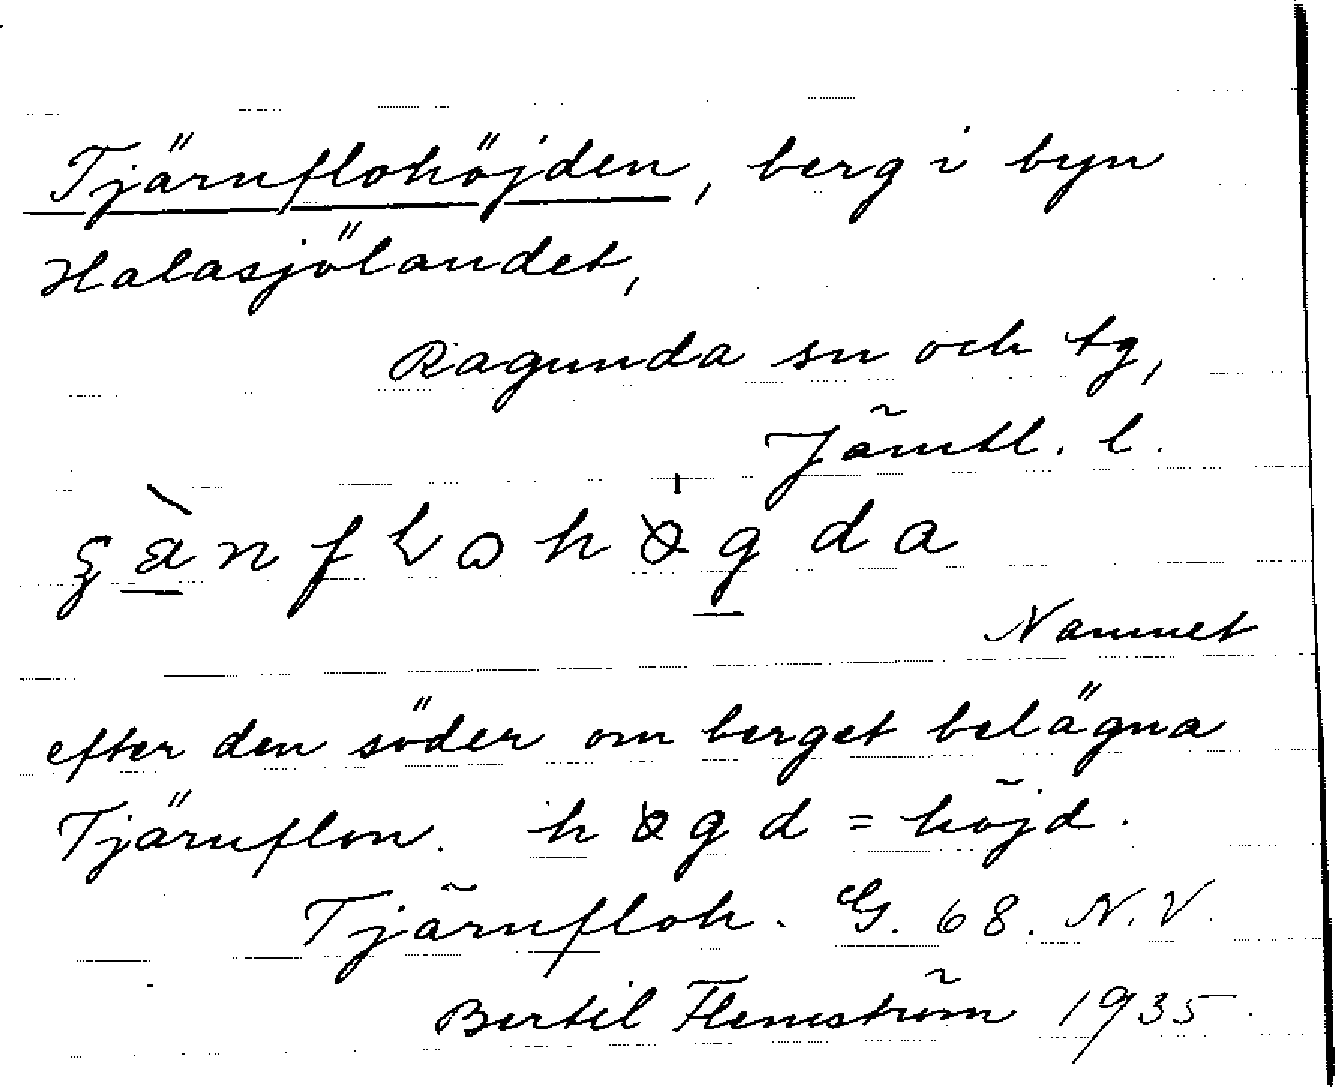 Tjärnflohöjden, berg i byn
Halasjölandet,
Ragunda sn och tg,
Jämtl. l.
Namnet
efter den söder om berget belägna
Tjärnflon. høgd = höjd.
Tjärnfloh. G. 68. N.V.
Bertil Flemström 1935.